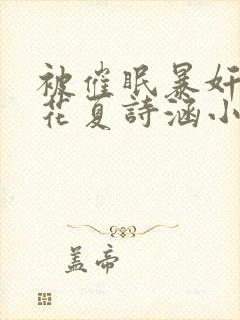 被催眠暴奸
花夏詩涵小
盖帝